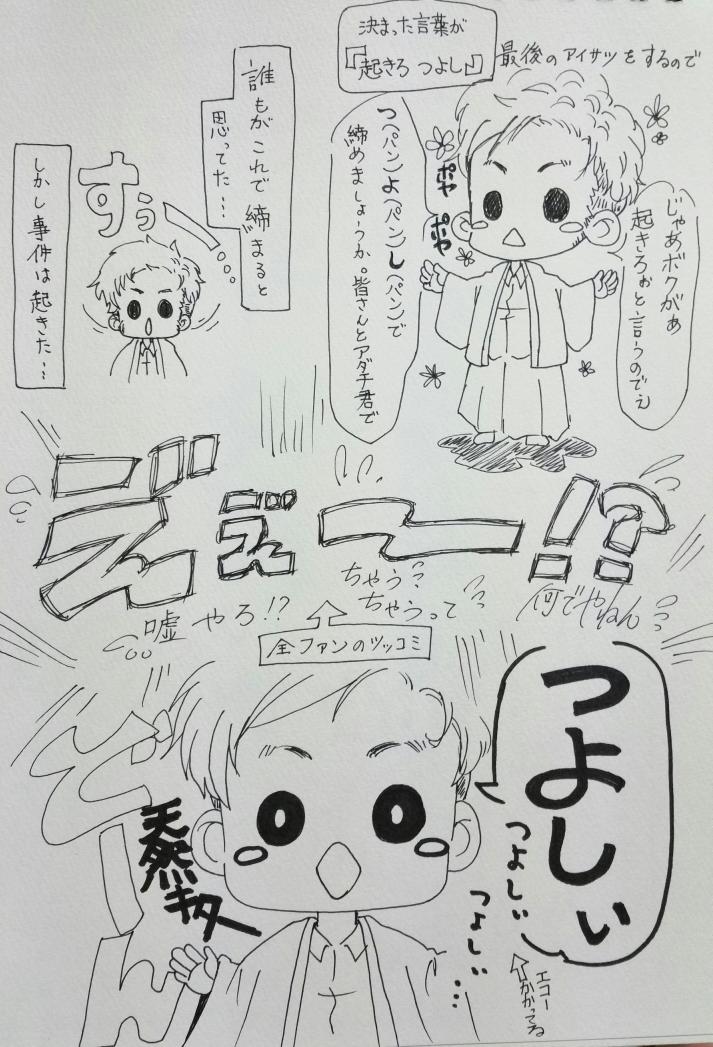 決まった言葉が
『起きろ つよし』
最後のアイサツをするので
じゃあボクがぁ
起きろぉと言うのでぇ
ポヤ
ポヤ
つ(パン)よ(パン)し(パン)で
締めましょうか。皆さんとアダチ君で
誰もがこれで締まると
思ってた…
すぅー
しかし事件は起きた…
えぇ〜!?
嘘やろ!?
ちゃう?
ちゃうって
何でやねん
全ファンのツッコミ
つよしぃ
つよしぃ
つよしぃ…
エコー
かかってる
天然
キター